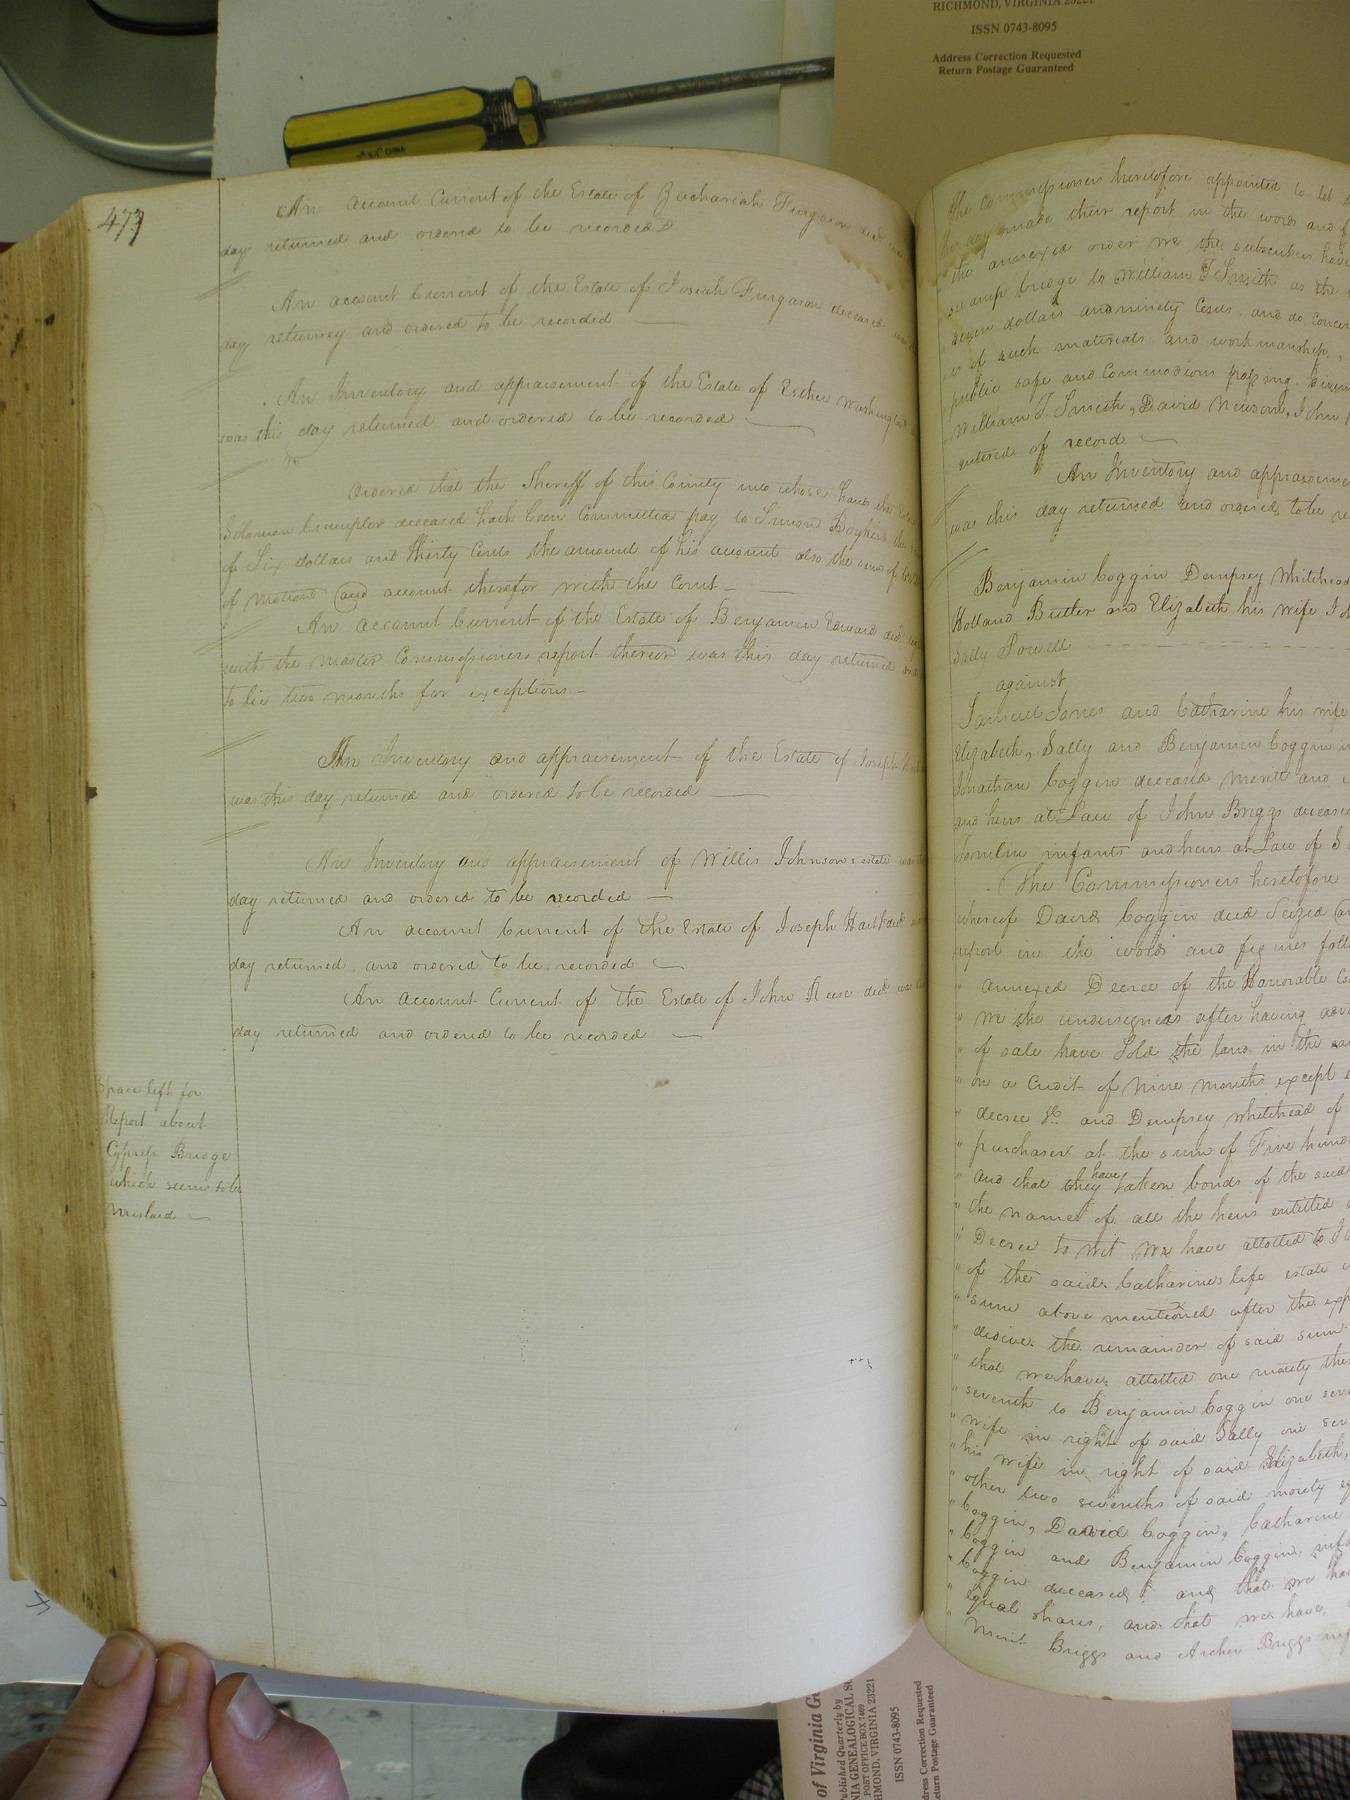 RICHMOND, VIRGINIA 23221
ISSN 0743-8095
Address Correction Requested
Return Postage Guaranteed
473
An account Current of the Estate of Zachariah Furgason decd
day returned and ordered to be recorded
An account Current of the Estate of Josiah Furgason deceased
day returned and ordered to be recorded
An Inventory and appraisement of the Estate of Esther Washington
was this day returned and ordered to be recorded
Ordered that the Sheriff of this County into whose hands the Estate
Solomon Crumpler deceased hath been Committed pay to Simon Boykin the
of Six dollars and thirty Cents the amount of his account also the
of motions and account therefor with the Court
An account Current of the Estate of Benjamin Edwards decd
with the master Commissioners report thereon was this day returned
to lie two months for exceptions
An Inventory and appraisement of the Estate of Joseph
was this day returned and ordered to be recorded
An Inventory and appraisement of Willis Johnsons estate was
day returned and ordered to be recorded
An account Current of the Estate of Joseph Hart decd
day returned and ordered to be recorded
An account Current of the Estate of John Reese decd was
day returned and ordered to be recorded
Space left for
Report about
Cypress Bridge
which seems to be
mislaid
The commissioners heretofore appointed to let
this day make their report in the words and
the annexed order we the subscribers have
swamp bridge to William T Smith as the
seven dollars and ninety Cents and do
is of such materials and workmanship
public safe and Commodious passing. Given
William T. Smith, David Newsom, John
entered of record
An Inventory and appraisement
was this day returned and ordered to be
Benjamin Coggin Dempsey Whitehead
Holland Butler and Elizabeth his wife
Sally Powell
against
Samuel Jones and Catharine his wife
Elizabeth, Sally and Benjamin Coggin
Jonathan Coggin deceased Merit and
and heirs at Law of John Briggs deceased
infants and heirs at Law of
The Commissioners heretofore
whereof David Coggin died Seized
report in the words and figures
" annexed Decree of the Honorable
" we the undersigned after having
" of sale have Sold the land in the
" on a Credit of nine months except
" decree &c. and Dempsey Whitehead of
" purchaser at the sum of Five
" and that they have taken bonds of the said
" the names of all the heirs entitled
" Decree to wit We have allotted to
" of the said Catharines life estate
" sum above mentioned after the
" the remainder of said sum
" that we have allotted one moiety
" seventh to Benjamin Coggin one
" wife in right of said Sally one
" his wife in right of said Elizabeth,
" other two sevenths of said moiety
" Coggin, David Coggin, Catharine
" Coggin and Benjamin Coggin,
" Coggin deceased and that we have
" equal shares, and that we have
" Merit Briggs and Archer Briggs
of Virginia
Published Quarterly by
GENEALOGICAL
POST OFFICE BOX 7469
RICHMOND, VIRGINIA 23221
ISSN 0743-8095
Address Correction Requested
Return Postage Guaranteed